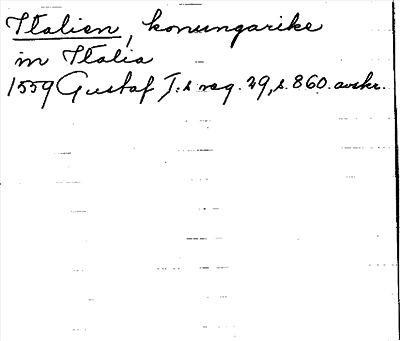 Italien, konungarike
in Italia
1559 Gustaf I.s reg. 29, s. 860. avskr.